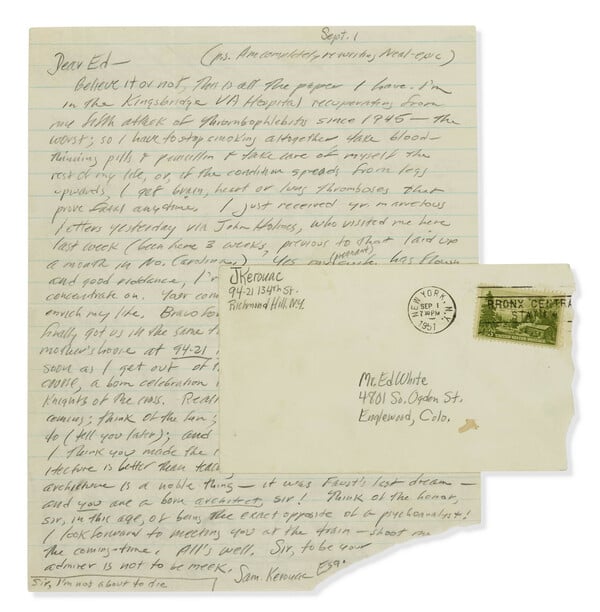 Sept. 1
Dear Ed— (p.s. Am completely rewriting Neal-epic)
Believe it or not, this is all the paper I have. I'm
in the Kingsbridge VA Hospital recuperating from
my fifth attack of thrombophlebitis since 1945 — the
worst; so I have to stop smoking altogether, take blood-
thinning pills & penicillin & take care of myself the
rest of my life, or, if the condition spreads from legs
upwards, I get brain, heart or lung thromboses that
prove fatal anytime. I just received yr. marvelous
letters yesterday via John Holmes, who visited me here
last week (been here 3 weeks, previous to that laid up
a month in No. Carolina.) Yes my wife (pregnant) has flown
and good riddance, I'
concentrate on. Your com
enrich my life. Bravo for
finally got us in the same t
mother's house at 94-21
soon as I get out of t
course, a born celebration
Knights of the cross. Reall
coming; think of the fun;
to (tell you later); and
I think you made the
itecture is better than teac
architecture is a noble thing — it was Faust's last dream —
and you are a born architect, sir! Think of the honor,
sir, in this age, of being the exact opposite of a psychoanalyst!
I look forward to meeting you at the train — shoot me
the coming-time. All's well. Sir, to be your
admirer is not to be meek.
Sam. Kerouac Esq.
Sir, I'm not about to die
JKerouac
94-21 134th St.
Richmond Hill, N.Y.
NEW YORK, N.Y.
SEP 1
7 PM
1951
BRONX CENTRA
STA
Mr. Ed White
4801 So. Ogden St.
Englewood, Colo.